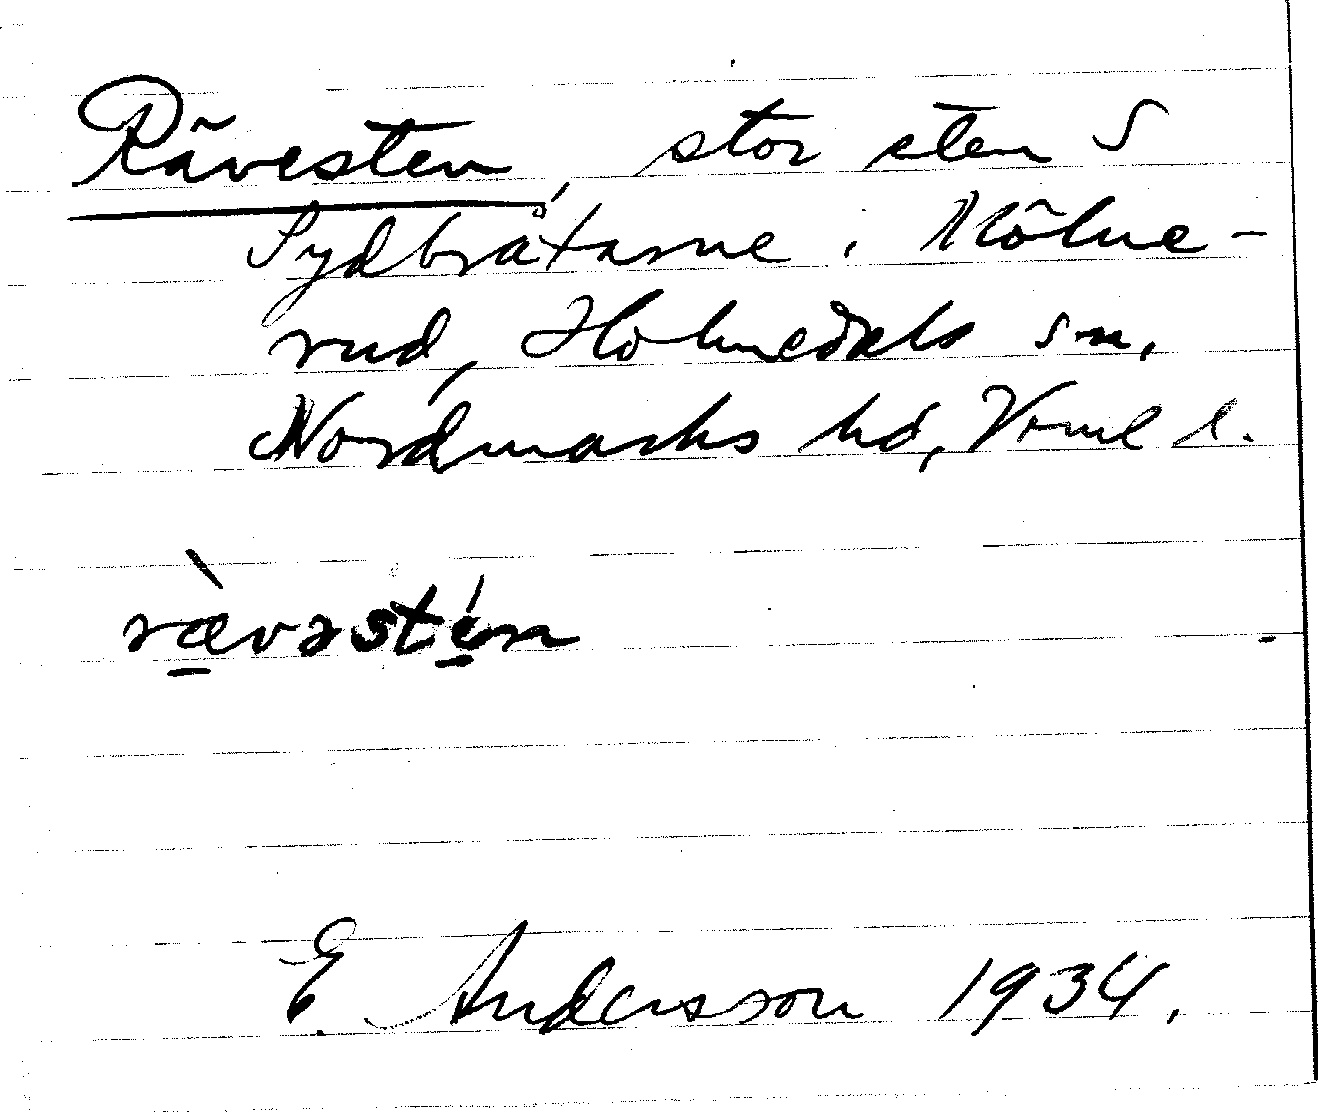 Rävesten, stor sten S
Sydbråtarne i Mölne-
rud, Holmedals sn,
Nordmarks hd, Vrml l.
rævəstén
E. Andersson 1934.